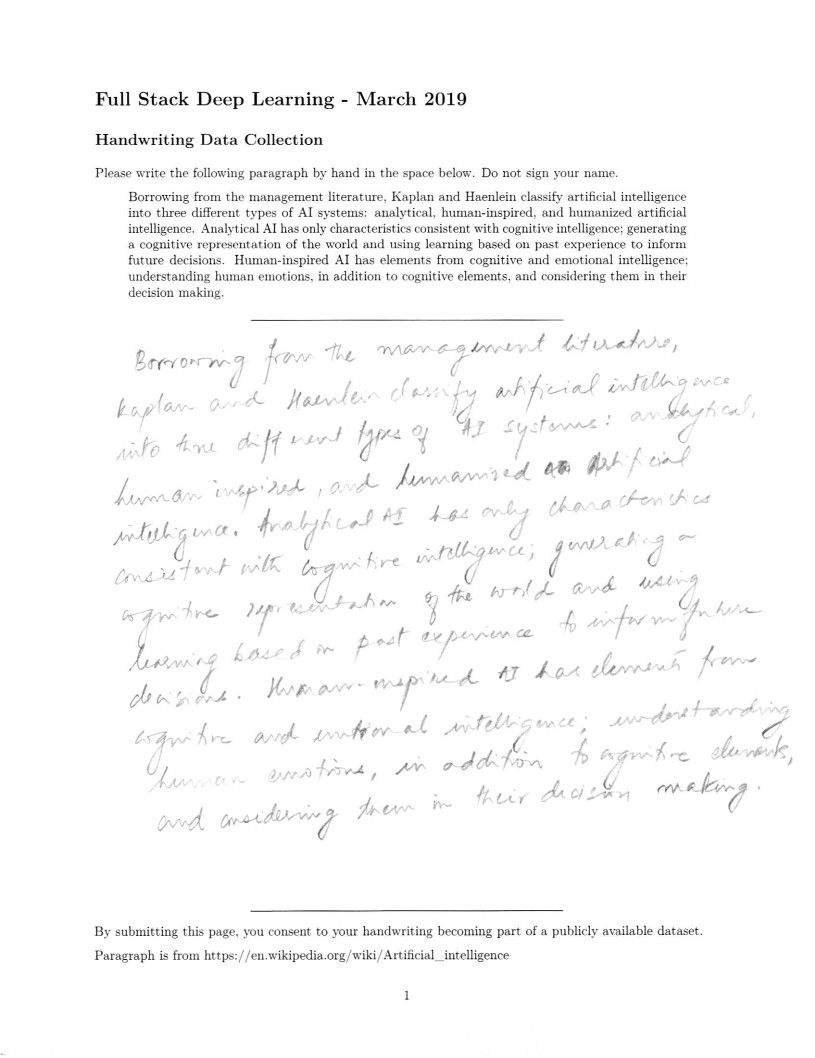 Full Stack Deep Learning - March 2019
Handwriting Data Collection
Please write the following paragraph by hand in the space below. Do not sign your name.
Borrowing from the management literature, Kaplan and Haenlein classify artificial intelligence
into three different types of AI systems: analytical, human-inspired, and humanized artificial
intelligence. Analytical AI has only characteristics consistent with cognitive intelligence; generating
a cognitive representation of the world and using learning based on past experience to inform
future decisions. Human-inspired AI has elements from cognitive and emotional intelligence;
understanding human emotions, in addition to cognitive elements, and considering them in their
decision making.
Borrowing from the management literature,
Kaplan and Haenlein classify artificial intelligence
into three different types of AI systems: analytical,
human inspired, and humanized artificial
intelligence. Analytical AI has only characteristics
consistent with cognitive intelligence; generating a
cognitive representation of the world and using
learning based on past experience to inform future
decisions. Human-inspired AI has elements from
cognitive and emotional intelligence; understanding
human emotions, in addition to cognitive elements,
and considering them in their decision making.
By submitting this page, you consent to your handwriting becoming part of a publicly available dataset.
Paragraph is from https://en.wikipedia.org/wiki/Artificial_intelligence
1